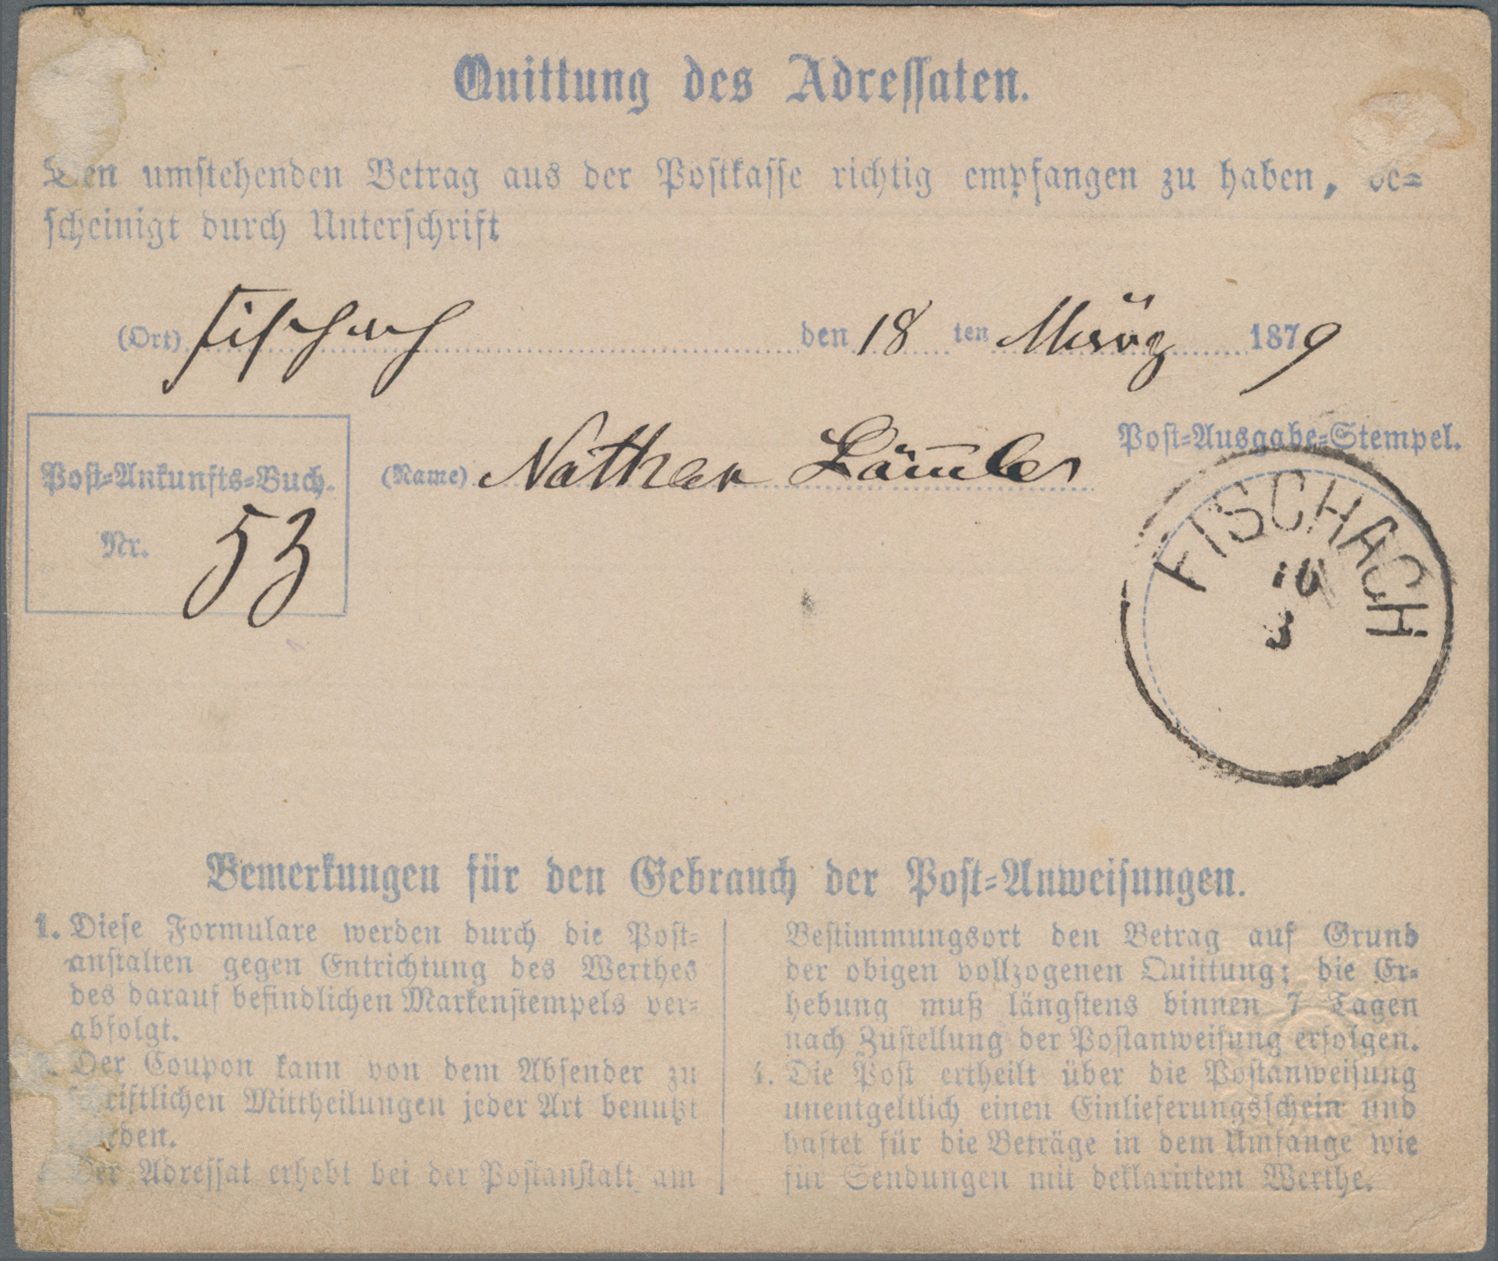 Quittung des Adressaten.
Den umstehenden Betrag aus der Postkasse richtig empfangen zu haben, be-
scheinigt durch Unterschrift
(Ort) Fischach den 18 ten März 1879
Post-Ausgabe-Stempel.
Post-Ankunfts-Buch.
(Name) Nathan
Nr. 53
FISCHACH
3
Bemerkungen für den Gebrauch der Post-Anweisungen.
1. Diese Formulare werden durch die Post-
anstalten gegen Entrichtung des Werthes
des darauf befindlichen Markenstempels ver-
abfolgt.
Der Coupon kann von dem Absender zu
schriftlichen Mittheilungen jeder Art benutzt
werden.
Der Adressat erhebt bei der Postanstalt am
Bestimmungsort den Betrag auf Grund
der obigen vollzogenen Quittung; die Er-
hebung muß längstens binnen 7 Tagen
nach Zustellung der Postanweisung erfolgen.
4. Die Post ertheilt über die Postanweisung
unentgeltlich einen Einlieferungsschein und
haftet für die Beträge in dem Umfange wie
für Sendungen mit deklarirtem Werthe.